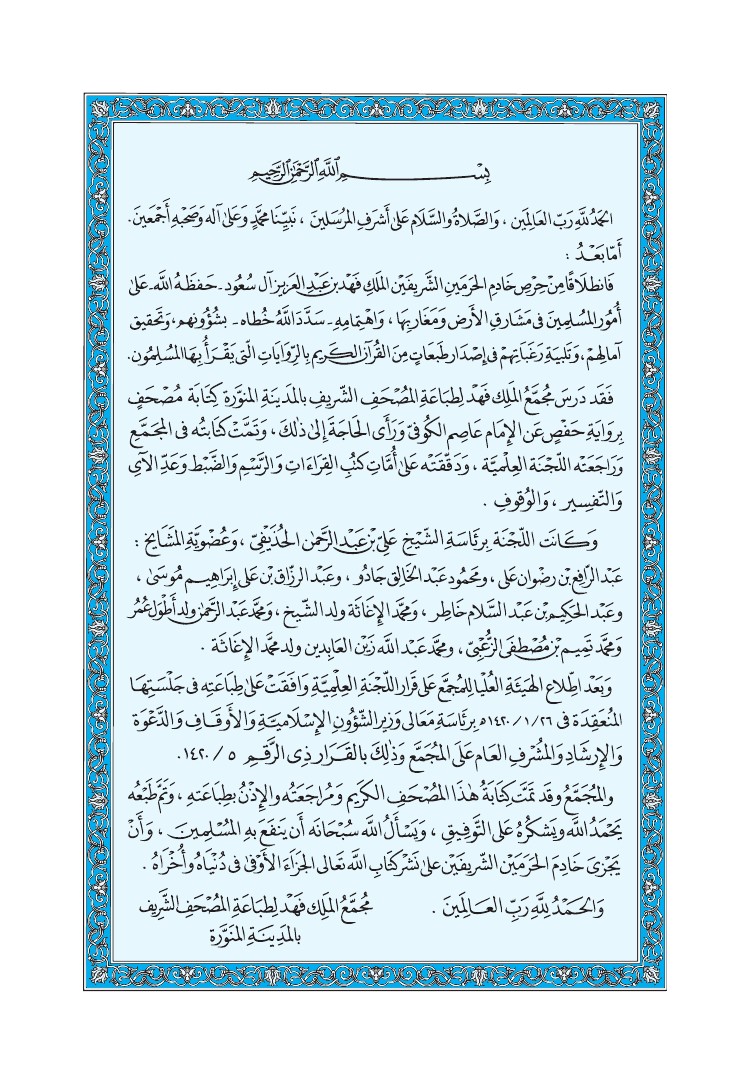 بِسْمِ ٱللَّهِ ٱلرَّحْمَٰنِ ٱلرَّحِيمِ
الحَمْدُ لِلَّهِ رَبِّ العَالَمِينَ ، وَالصَّلَاةُ وَالسَّلَام عَلَىٰ أَشرَفِ المُرسَلينَ ، نَبِيِّنَا محمَّدٍ وَعَلىٰ آله وَصَحْبِه أَجْمَعينَ .
أَمَّا بَعْدُ :
فَانطلَاقًا مِنْ حِرْصِ خَادِمِ الحَرَمَينِ الشَّرِيفَيْنِ المَلِكِ فَهْد بْن عَبْد العَزيز آل سُعُود ـ حَفظَهُ اللَّه ـ عَلىٰ
أُمُور المُسلِمينَ فى مَشَارقِ الأَرضِ وَمَغَاربِهَا ، وَاهتِمامِهِ ـ سَدَّدَ اللَّهُ خُطاه ـ بشُؤُونهم ، وَتحقيق
آمالِهمْ ، وَتلبيَة رَغَبَاتِهمْ فى إصْدَار طَبعَاتٍ مِنَ القُرآن الكَريمِ بالرِّوَايَاتِ الَّتى يَقْرَأُ بِهَا المُسْلِمُون .
فَقَد دَرَسَ مُجَمَّعُ المَلِكِ فَهْد لِطِبَاعَةِ المُصْحَفِ الشَّريفِ بالمَدينَةِ المنَوَّرَة كِتَابَةَ مُصْحَفٍ
برِوَايَةِ حَفْصٍ عَن الإِمَام عَاصِمٍ الكُوفىِّ وَرَأى الحَاجَةَ إلىٰ ذلكَ ، وَتمَّتْ كتَابتُه فى المجَمَّعِ
وَرَاجَعَتْه اللَّجْنَة العِلْمِيَّة ، وَدَقَّقَتْه عَلىٰ أُمَّاتِ كتُبِ القِرَاءَاتِ وَالرَّسْمِ وَالضَّبْط وَعَدِّ الآىِ
وَالتَّفْسِير ، وَالوُقُوفِ .
وَكَانَت اللَّجْنَة برئَاسَةِ الشَّيْخ عَلِىّ بْن عَبْد الرَّحمٰن الحُذَيْفِىّ ، وَعُضْويَّة المَشَايخ :
عَبْد الرَّافع بْن رضْوَان عَلى ، وَمحْمُود عَبْد الخَالق جَادُو ، وَعَبْد الرزَّاق بْن عَلى إبْرَاهِيم مُوسَىٰ ،
وَعَبْد الحَكِيم بْن عَبْد السَّلام خَاطِر ، وَمحمَّد الإغَاثَة ولد الشَّيخ ، وَمحمَّد عَبْد الرَّحمٰن ولد أَطْوَل عُمُر
وَمحمَّد تَمِيم بْن مُصْطَفَى الزُّعْبِىّ ، وَمحمَّد عَبْد اللَّه زَيْن العَابِدين ولد محمَّد الإِغَاثَة .
وَبَعْد اطِّلَاع الهَيئَةِ العُليَا لِلْمُجمَّع عَلى قَرار اللَّجْنَةِ العِلْمِيَّةِ وَافَقَتْ عَلىٰ طبَاعَتِه فى جَلْسَتِهَا
المنعَقِدَة فى ٢٦ / ١ / ١٤٢٠هـ برئَاسَةِ مَعَالى وَزير الشُّؤُونِ الإِسْلَاميَّةِ وَالأَوقَافِ وَالدَّعْوَة
وَالإِرشَادِ وَالمُشْرفِ العَام عَلَى المُجَمَّعِ وَذلِكَ بالقَرَار ذِى الرَّقْمِ ٥ / ١٤٢٠ .
والمُجَمَّعُ وَقد تَمَّت كِتَابَةُ هٰذا المُصْحَفِ الكَريمِ وَمُرَاجَعَتُه والإِذْنُ بِطِبَاعَتِهِ ، وَتَمَّ طَبْعُه
يَحْمَدُ اللَّه وَيَشْكُرُهُ عَلى التَّوْفِيقِ ، وَيَسْأَلُ اللَّه سُبْحَانَه أَن يَنفَعَ بِهِ المُسْلِمِينَ ، وَأَنْ
يَجْزى خَادِمَ الحَرَمَيْن الشَّريفَيْنِ عَلىٰ نَشْر كتَابِ اللَّه تَعَالى الجَزَاءَ الأَوْفىٰ فى دُنْيَاهُ وَأُخْرَاهُ .
وَالحَمْدُ لِلَّهِ رَبِّ العَالَمِينَ .
مُجَمَّعُ المَلِكِ فَهْد لِطِبَاعَةِ المُصْحَفِ الشَّريف
بالمَدِينَةِ المنَوَّرَة